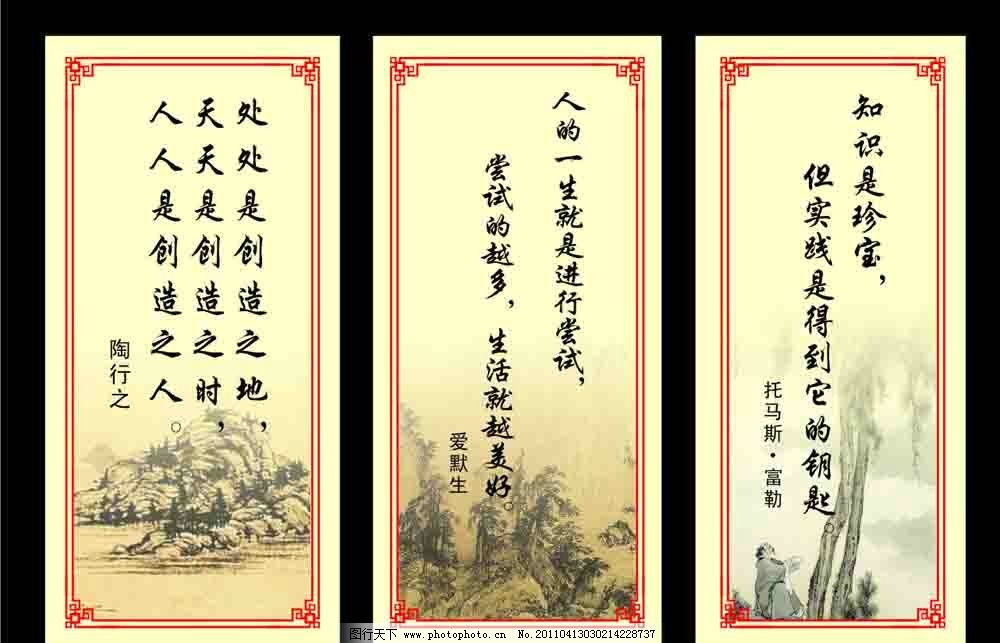 处处是创造之地，
天天是创造之时，
人人是创造之人。
陶行之
人的一生就是进行尝试，
尝试的越多，生活就越美好。
爱默生
知识是珍宝，
但实践是得到它的钥匙。
托马斯·富勒
图行天下 www.photophoto.cn No.20110413030214228737